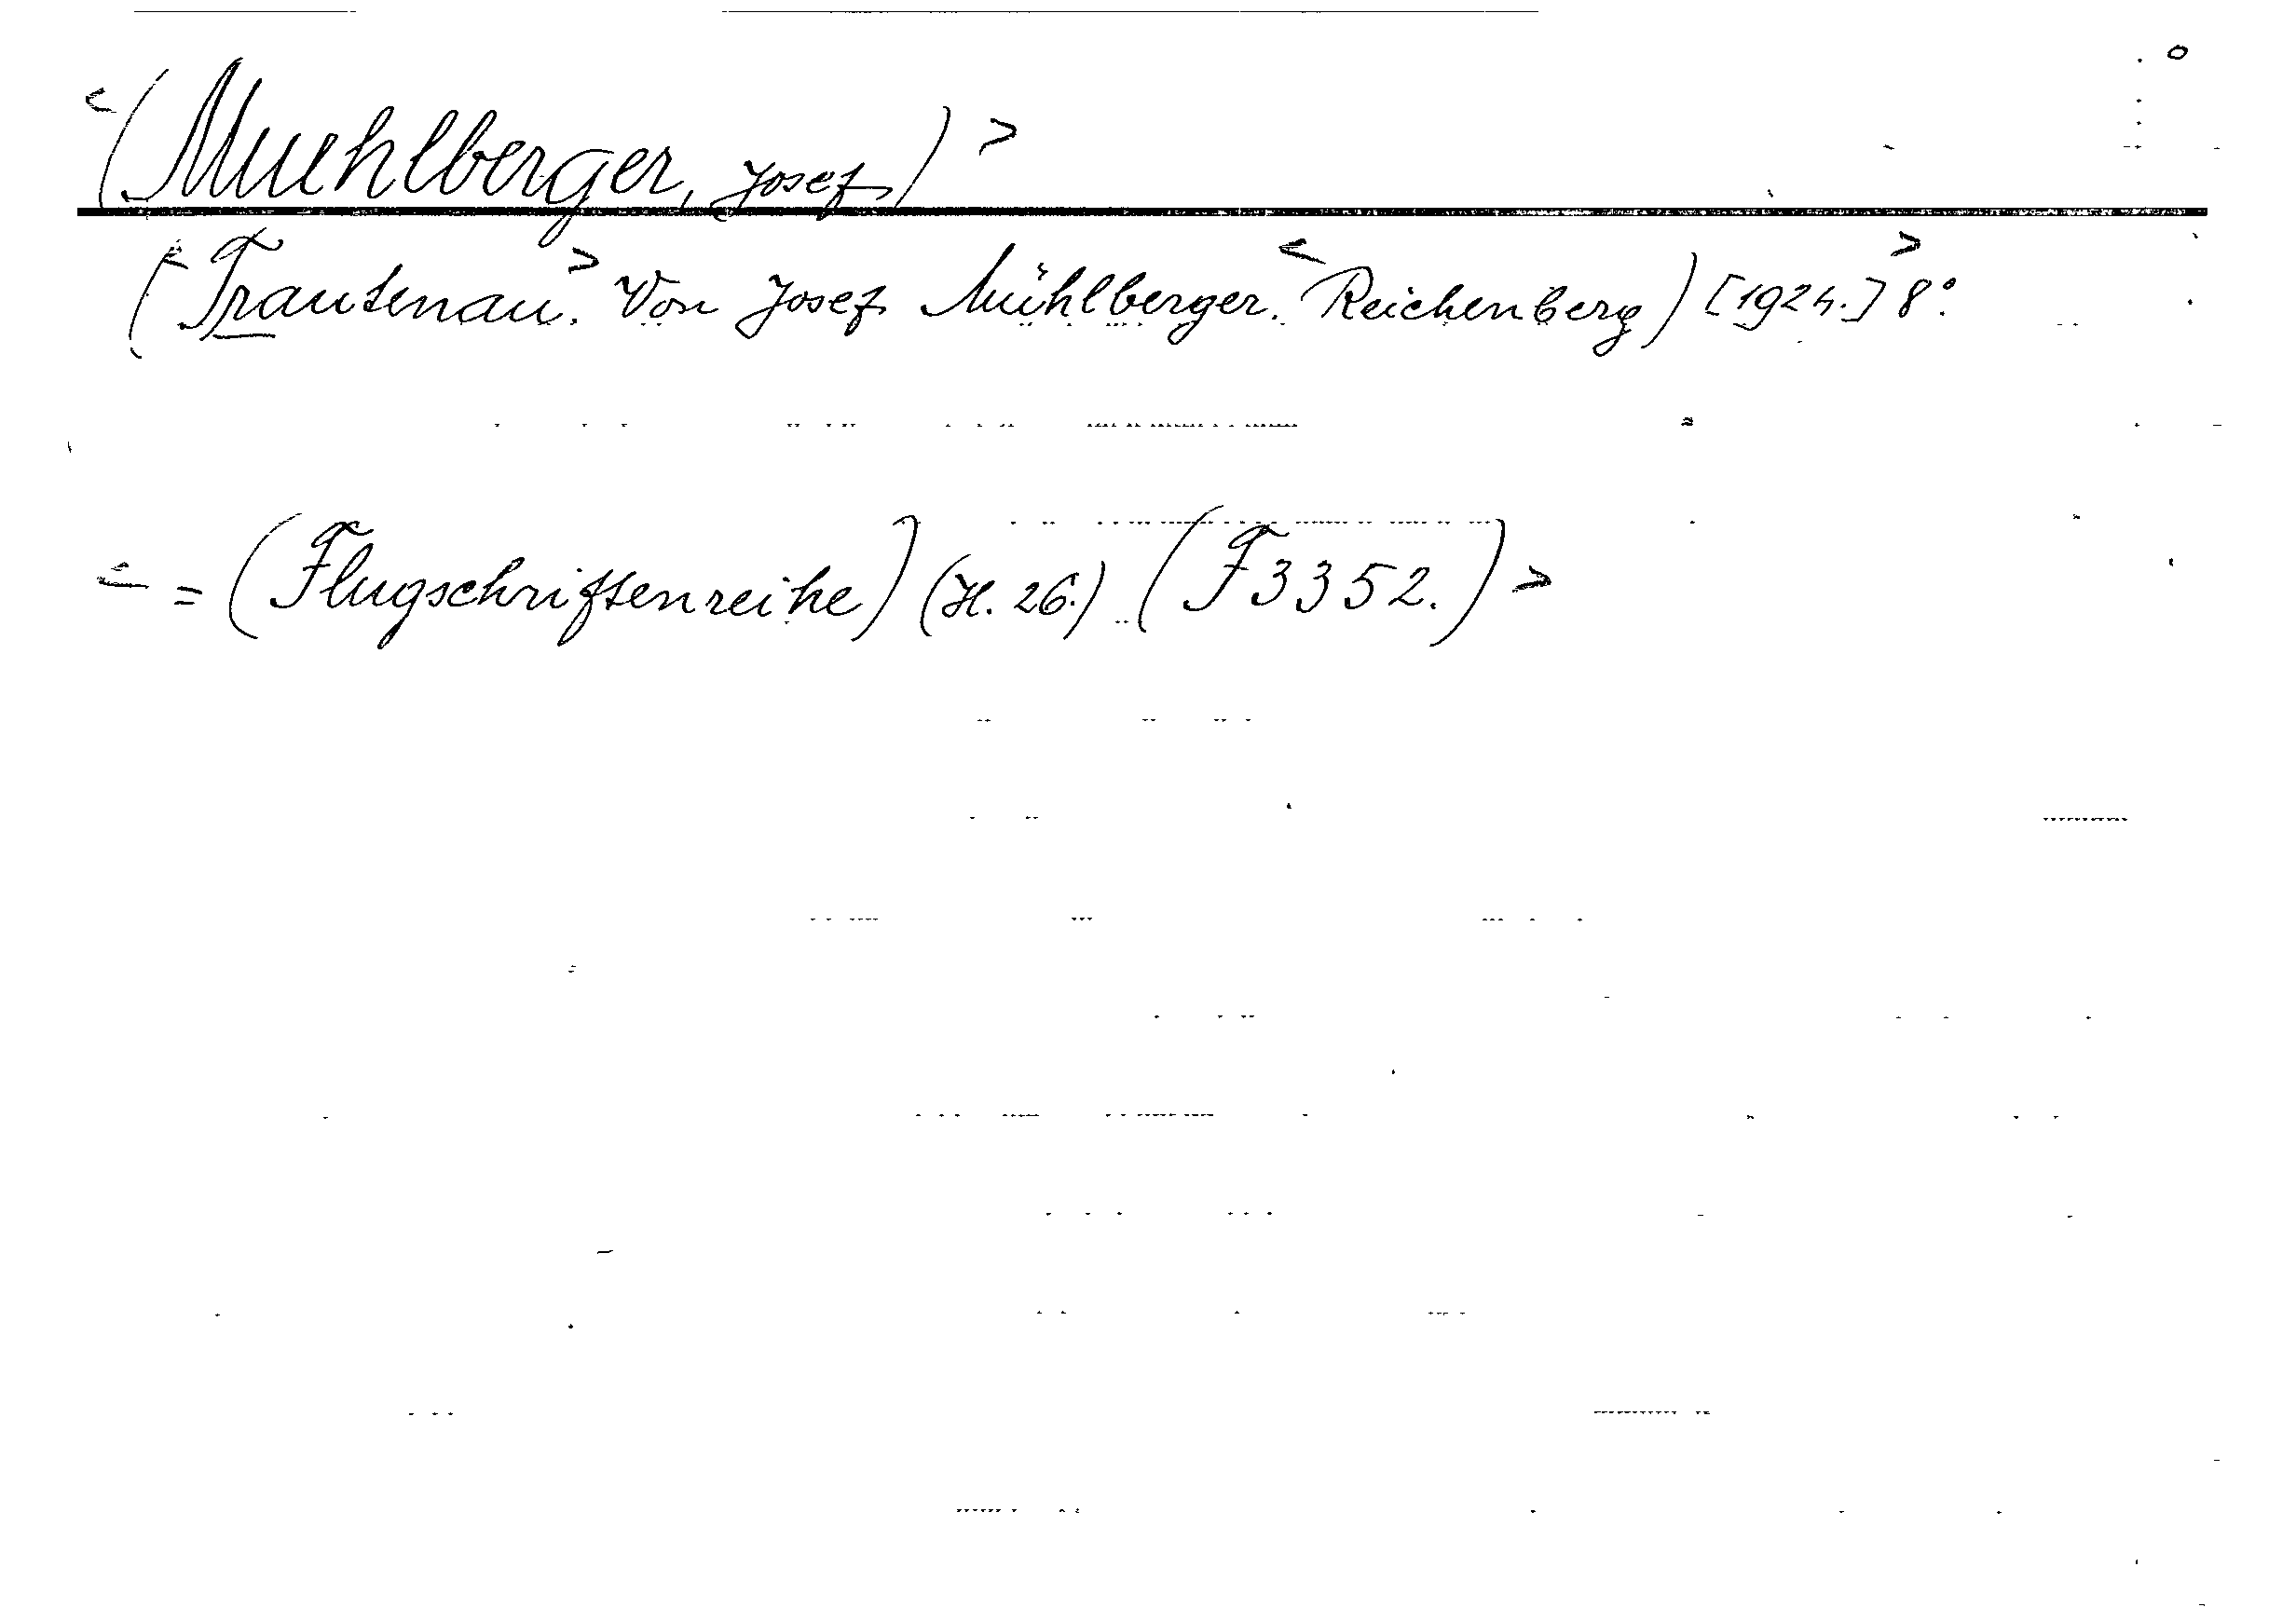 <(Muehlberger, Josef)>
(<Trautenau.> Von Josef Mühlberger. <Reichenberg) [1924.]> 8°.
< = (Flugschriftenreihe) (H. 26.) (F 3352.) >